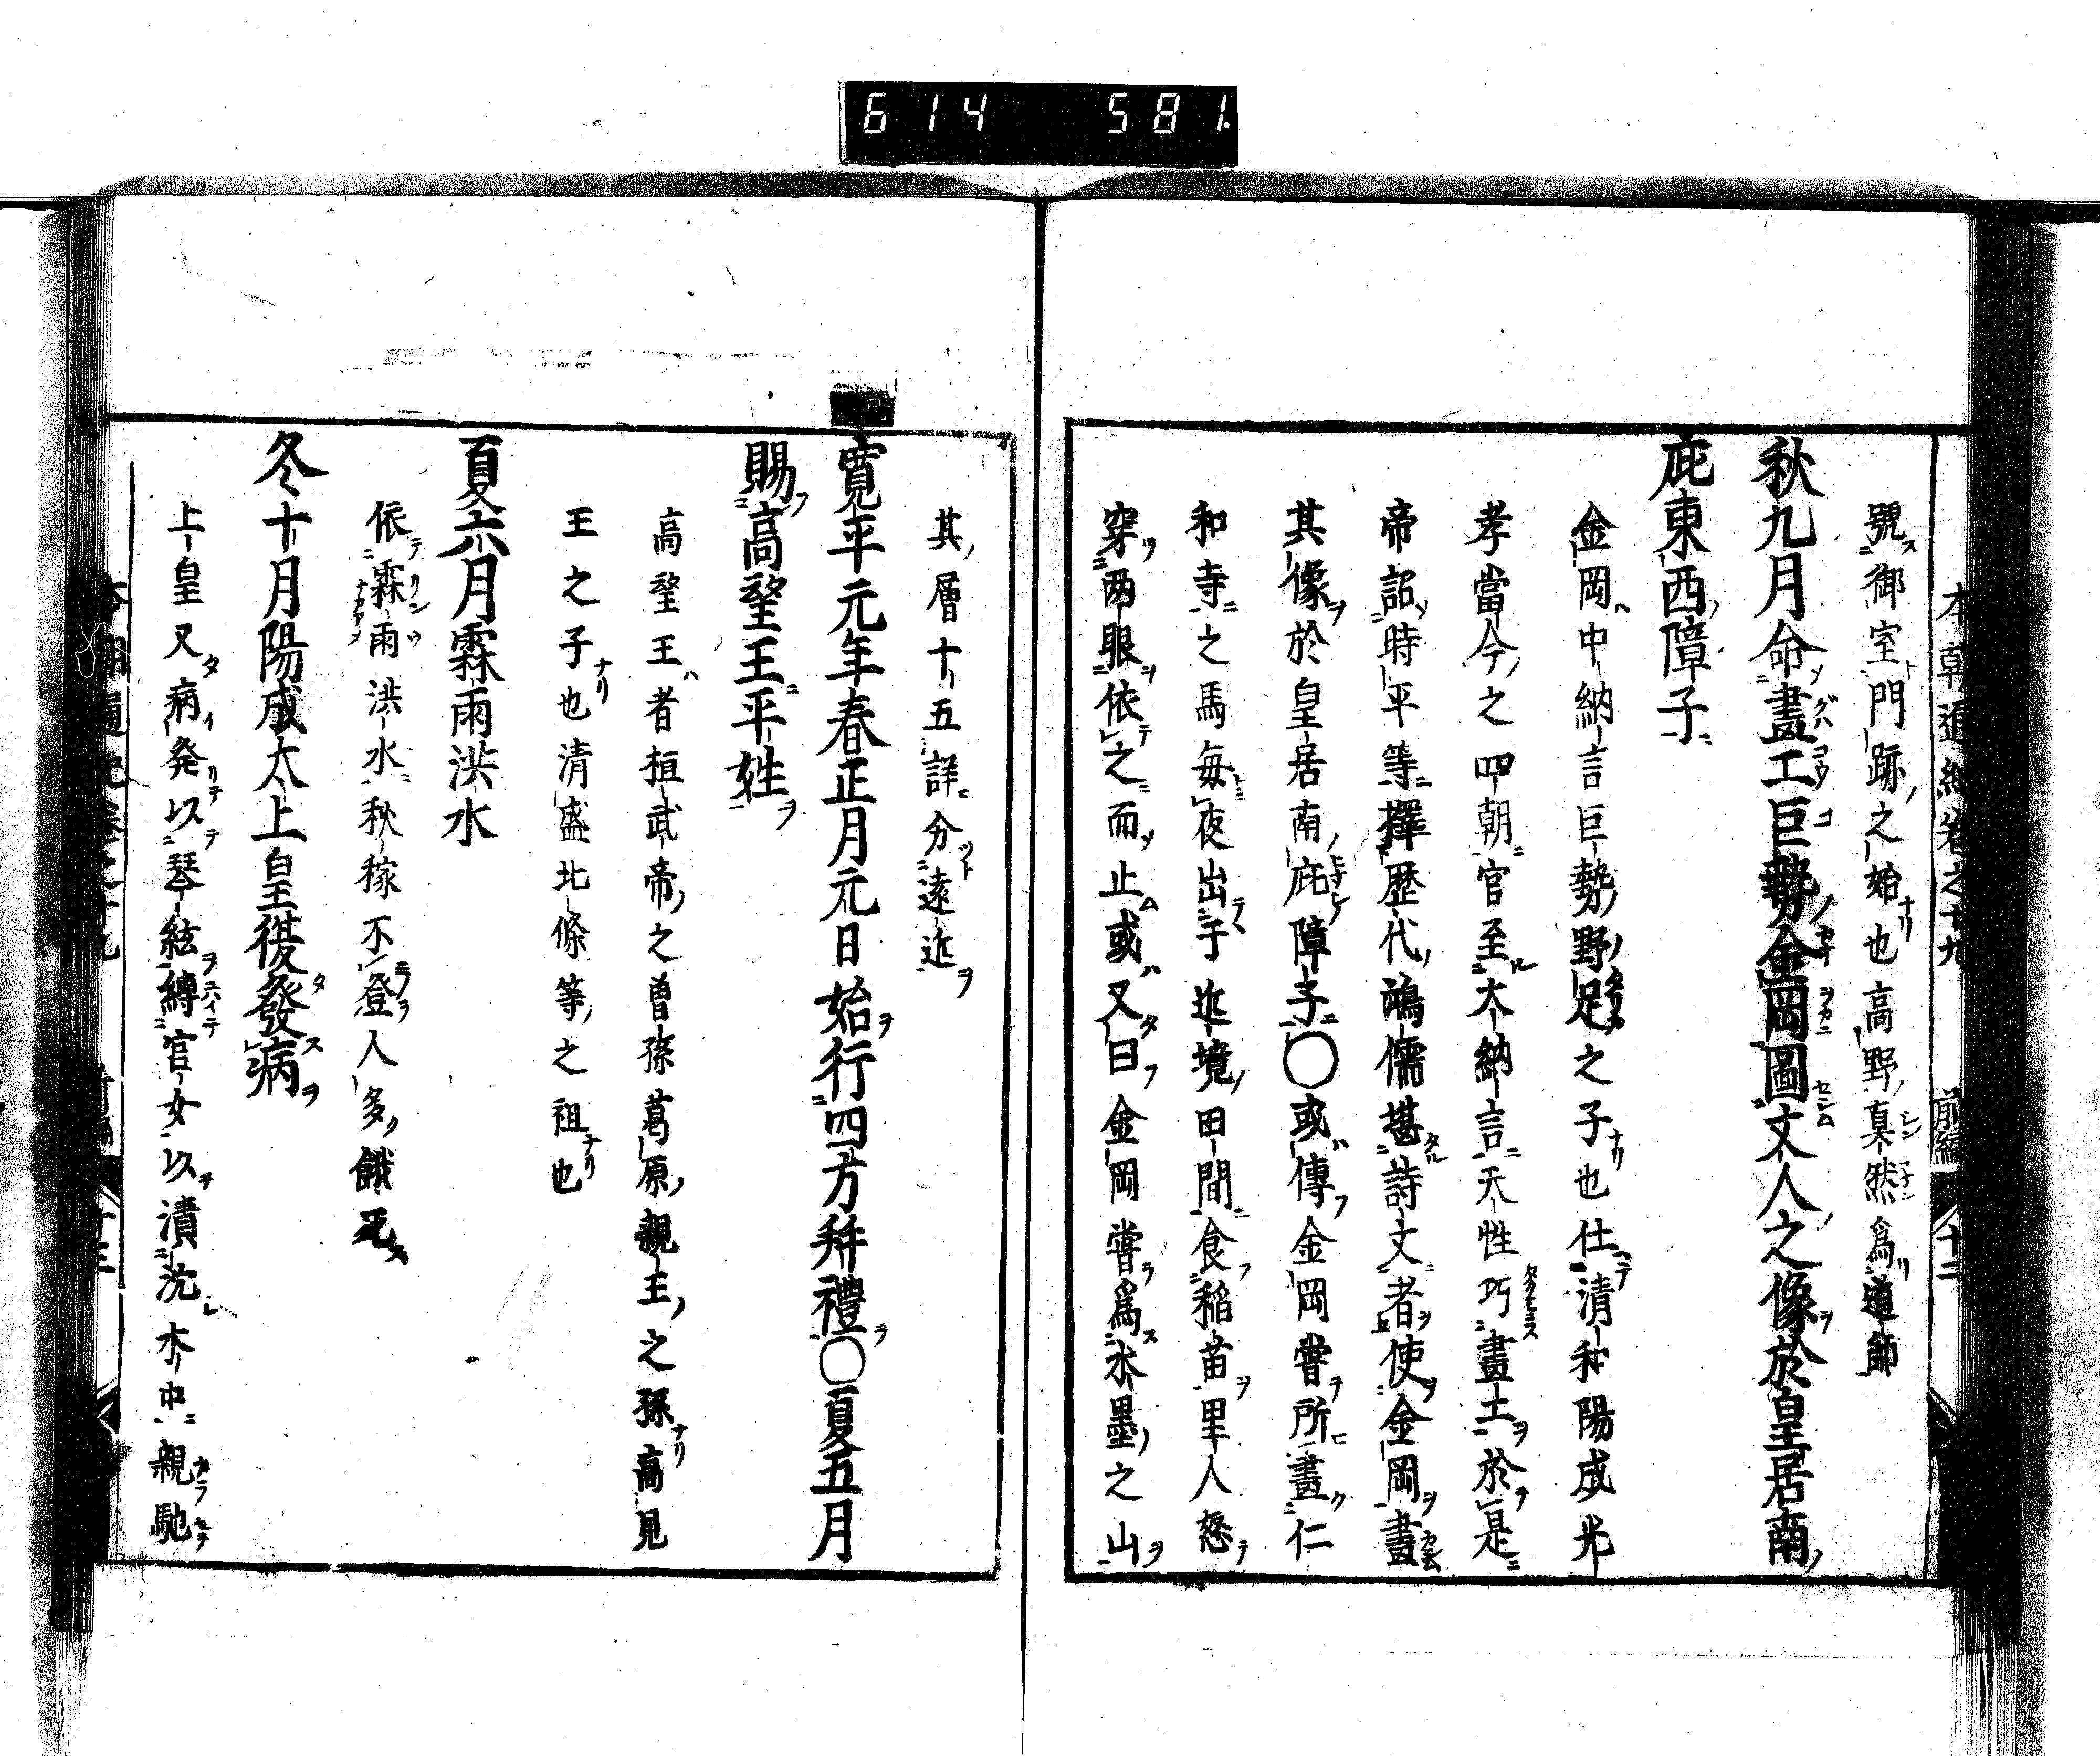 614 581
本朝通紀卷之十九 前編 十二
號御室門跡之始也高野真然爲道師
秋九月命畫工巨勢金岡圖文人之像於皇居南
庇東西障子
金岡中納言巨勢野足之子也仕清和陽成光
孝當今之四朝官至大納言天性巧畫工於是
帝詔時平等擇歷代鴻儒堪詩文者使金岡畫
其像於皇居南庇障子〇或傳金岡嘗所畫仁
和寺之馬每夜出于近境田間食稲苗里人怒
穿両眼依之而止或又曰金岡嘗爲水墨之山
其層十五詳分遠近
寛平元年春正月元日始行四方拜禮〇夏五月
賜高望王平姓
高望王者桓武帝之曽孫葛原親王之孫高見
王之子也清盛北條等之祖也
夏六月霖雨洪水
依霖雨洪水秋稼不登人多餓死
冬十月陽成太上皇復發病
上皇又病発以琴絃縛官女以漬沈水中親馳